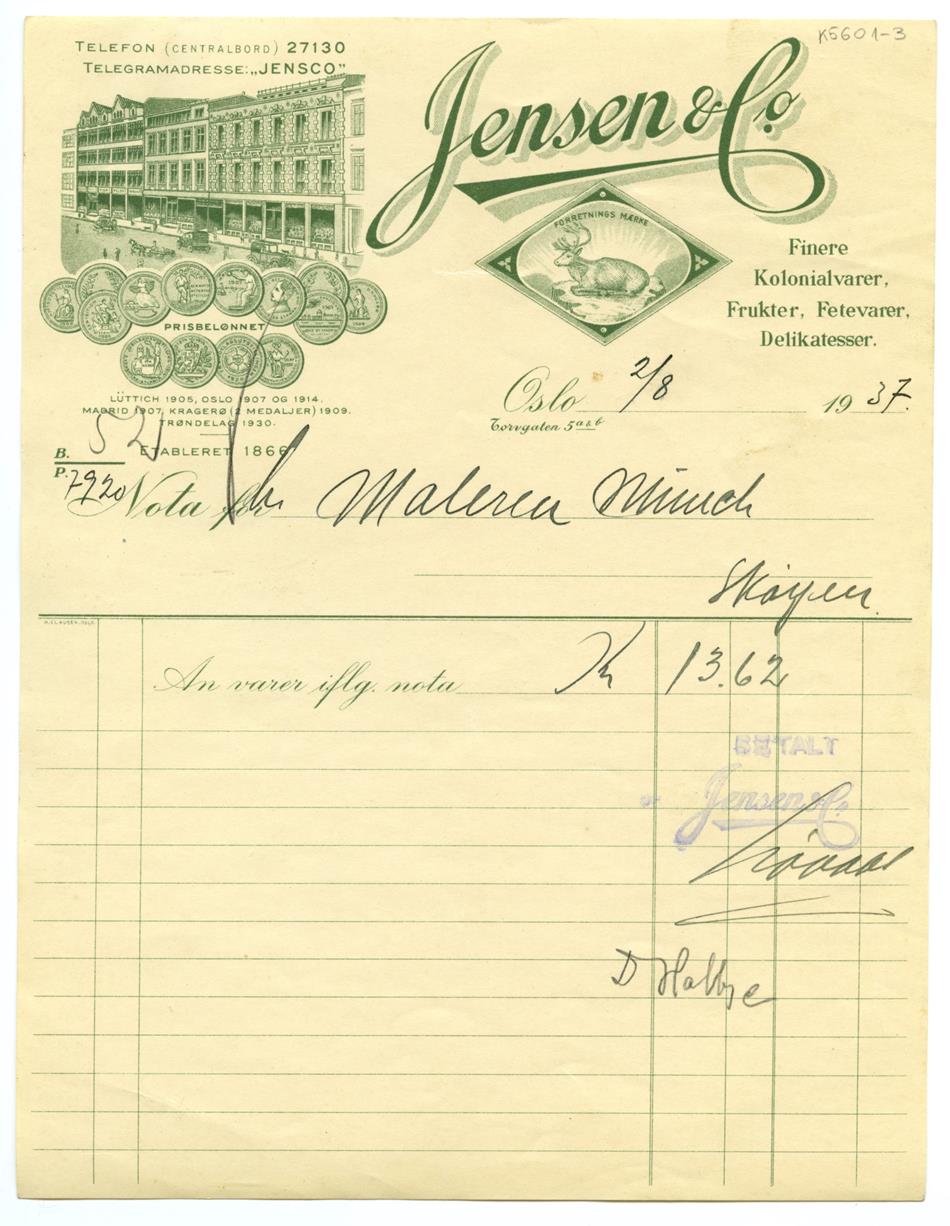 K5601-3
TELEFON (CENTRALBORD) 27130
TELEGRAMADRESSE: „JENSCO"
Jensen & Co.
FORRETNINGS MÆRKE
Finere
Kolonialvarer,
Frukter, Fetevarer,
Delikatesser.
PRISBELØNNET
LÜTTICH 1905, OSLO 1907 OG 1914.
MADRID 1907, KRAGERØ (2 MEDALJER) 1909.
TRØNDELAG 1930.
ETABLERET 1866
Oslo 2/8 1937.
Torvgaten 5 a & b
B. 521
P. 7920
Nota for Hr. Maleren Munch
Skøyen.
An varer iflg. nota Kr 13.62
BETALT
Jensen & Co.
D Halbye